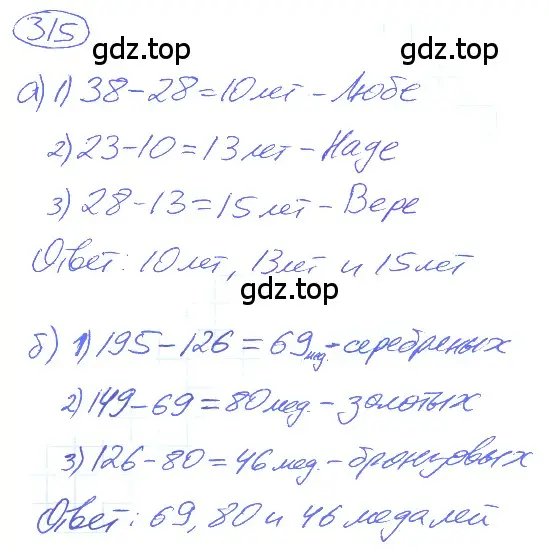 315
gdz.top
gdz.top
а) 1) 38-28=10 лет - Любе
2) 23-10=13 лет - Наде
3) 28-13=15 лет - Вере
Ответ: 10 лет, 13 лет и 15 лет
gdz.top
б) 1) 195-126=69 мед.-серебреных
2) 149-69=80 мед.-золотых
3) 126-80=46 мед.-бронзовых
Ответ: 69, 80 и 46 медалей